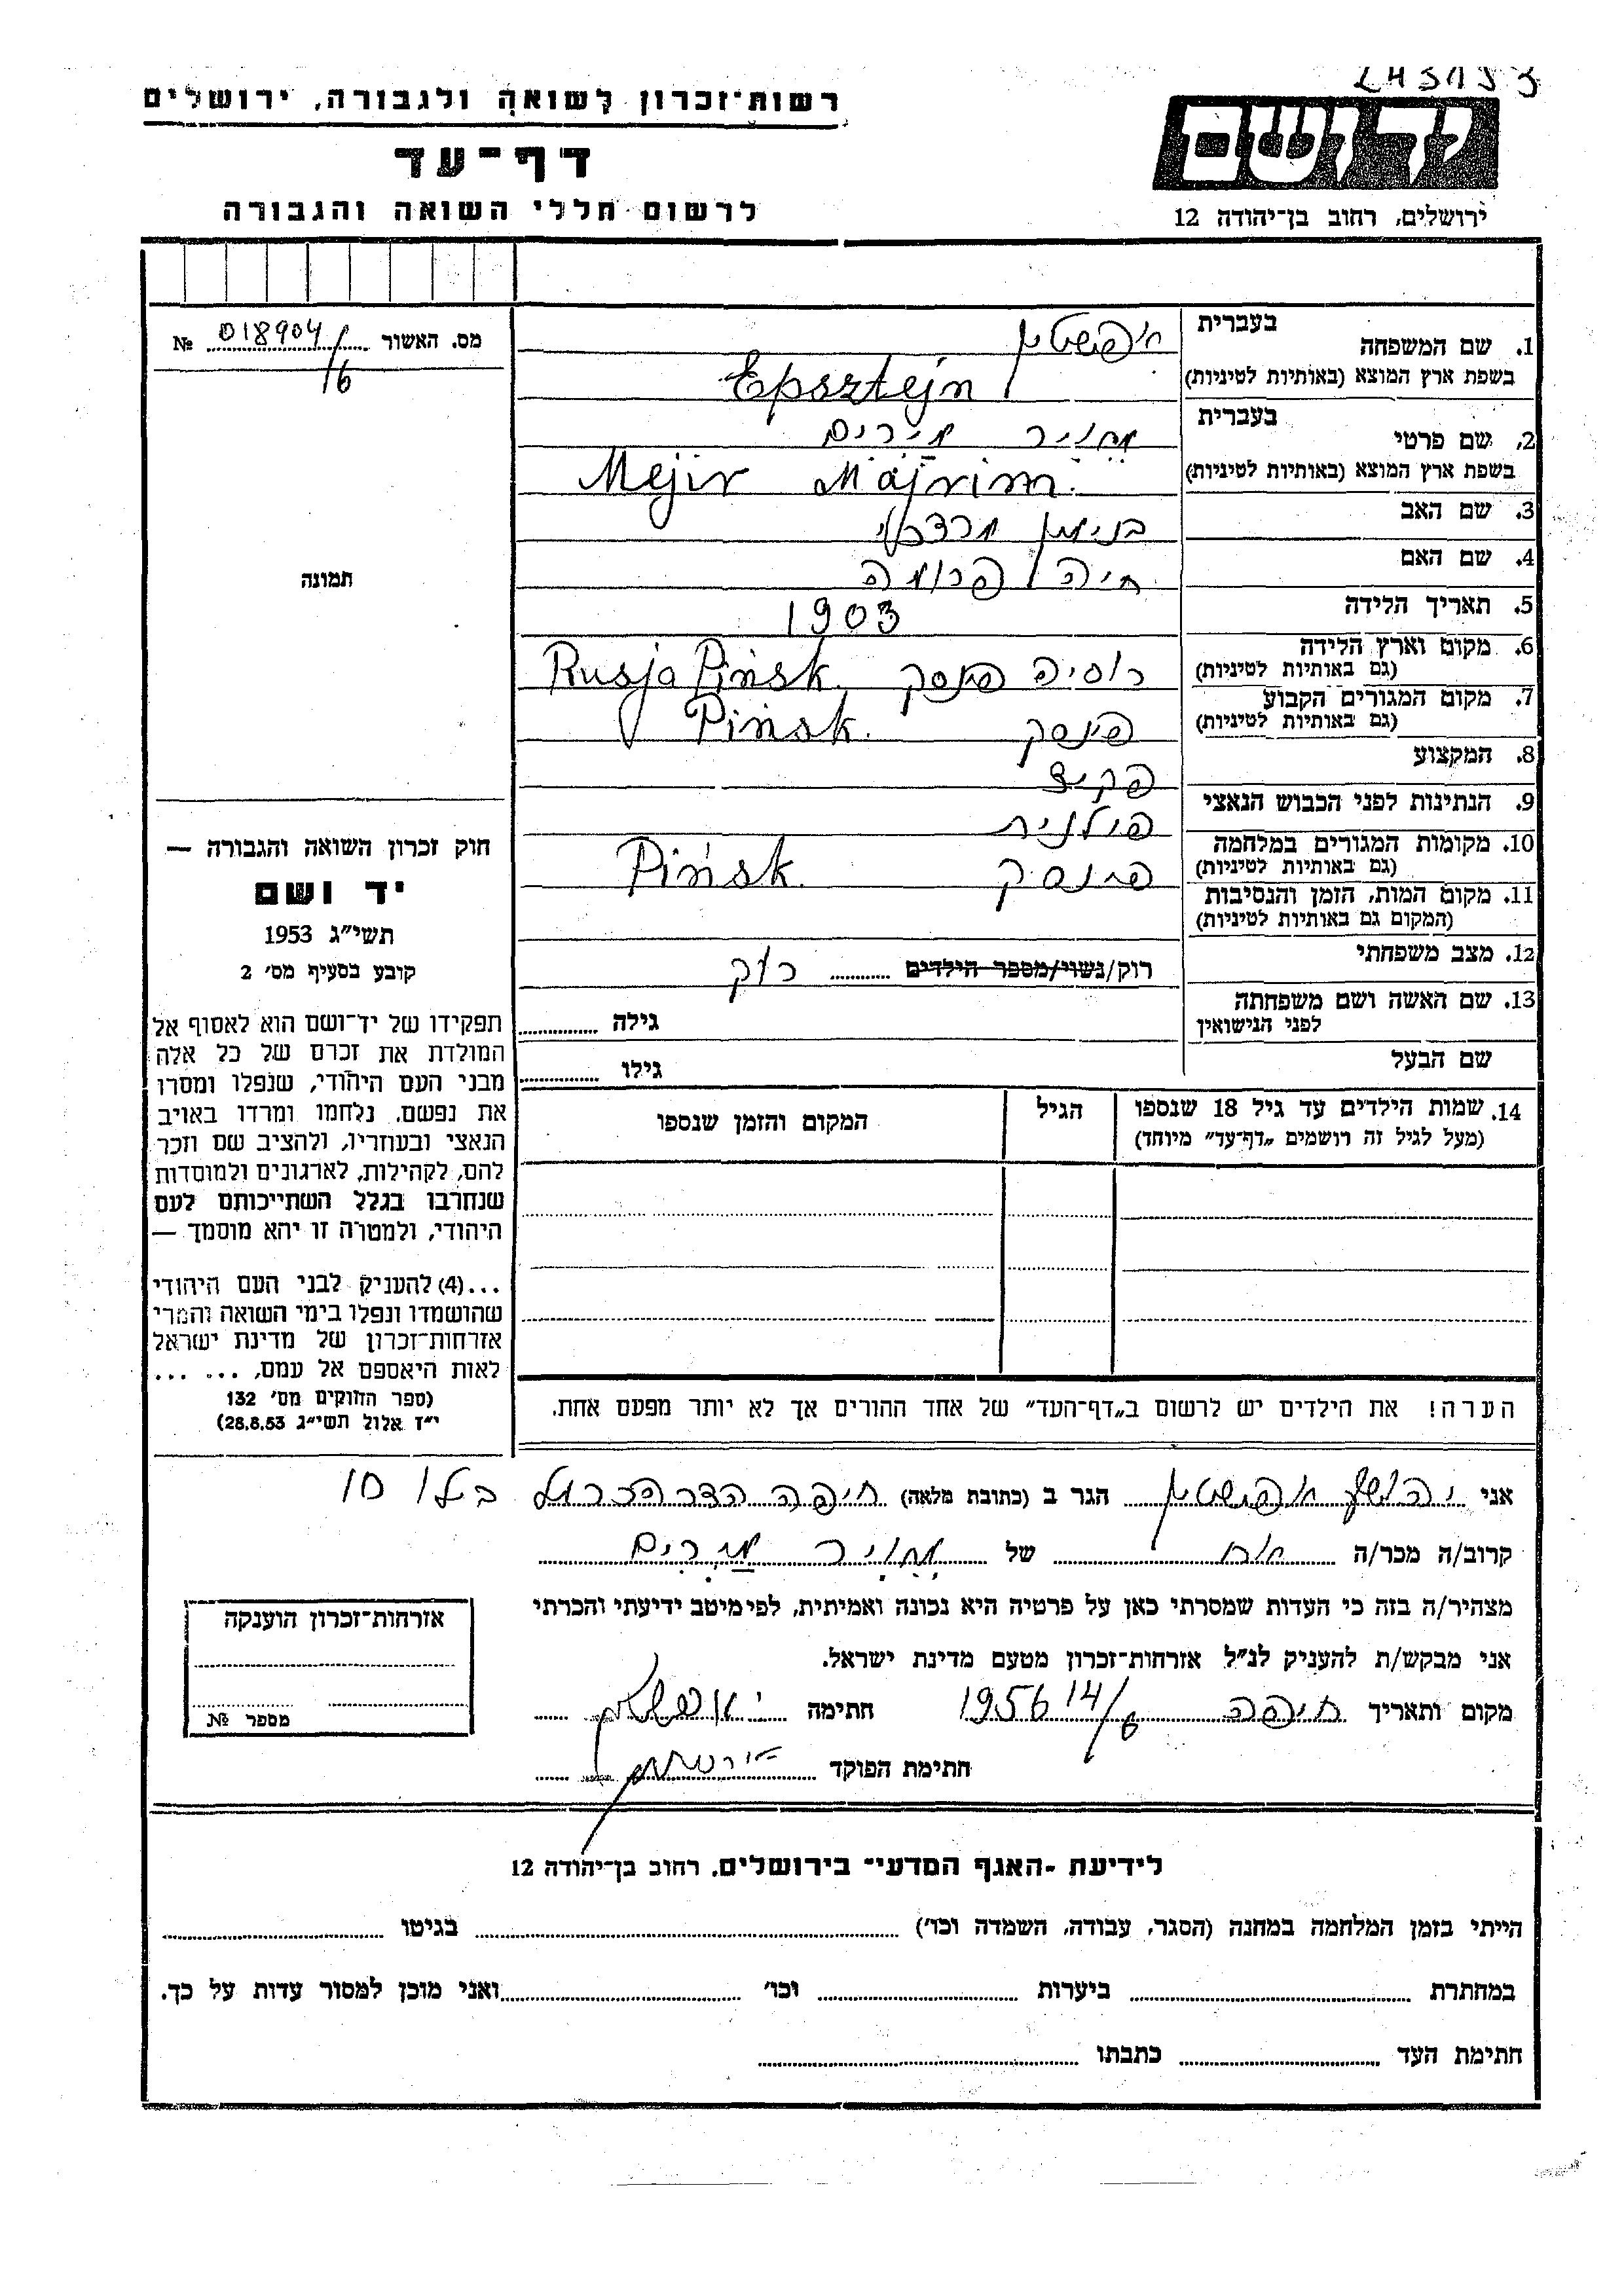 רשות־זכרון לשואה ולגבורה, ירושלים
דף־עד
לרשום חללי השואה והגבורה
יד ושם
ירושלים, רחוב בן־יהודה 12
מס. האשור 018904/16 №
תמונה
1. שם המשפחה בעברית אפשטין
בשפת ארץ המוצא (באותיות לטיניות) Epsztejn
2. שם פרטי בעברית מאיר מירים
בשפת ארץ המוצא (באותיות לטיניות) Mejir Majrim.
3. שם האב בנימין מרדכי
4. שם האם חיה פרומה
5. תאריך הלידה 1903
6. מקום וארץ הלידה (גם באותיות לטיניות) רוסיה פינסק Rusja Pińsk.
7. מקום המגורים הקבוע (גם באותיות לטיניות) פינסק Pińsk.
8. המקצוע פקיד
9. הנתינות לפני הכבוש הנאצי פולנית
10. מקומות המגורים במלחמה (גם באותיות לטיניות) פינסק Pińsk.
11. מקום המות, הזמן והנסיבות (המקום גם באותיות לטיניות)
12. מצב משפחתי רוק/נשוי/מספר הילדים רוק
13. שם האשה ושם משפחתה לפני הנישואין גילה
שם הבעל גילו
14. שמות הילדים עד גיל 18 שנספו (מעל לגיל זה רושמים „דף־עד” מיוחד) הגיל המקום והזמן שנספו
הערה! את הילדים יש לרשום ב„דף־העד” של אחד ההורים אך לא יותר מפעם אחת.
חוק זכרון השואה והגבורה —
יד ושם
תשי״ג 1953
קובע בסעיף מס׳ 2
תפקידו של יד־ושם הוא לאסוף אל
המולדת את זכרם של כל אלה
מבני העם היהודי, שנפלו ומסרו
את נפשם, נלחמו ומרדו באויב
הנאצי ובעוזריו, ולהציב שם וזכר
להם, לקהילות, לארגונים ולמוסדות
שנחרבו בגלל השתייכותם לעם
היהודי, ולמטרה זו יהא מוסמך —
...(4) להעניק לבני העם היהודי
שהושמדו ונפלו בימי השואה והמרי
אזרחות־זכרון של מדינת ישראל
לאות היאספם אל עמם, ... ...
(ספר החוקים מס׳ 132
י״ז אלול תשי״ג 28.8.53)
אני יהושע אפשטין הגר ב (כתובת מלאה) חיפה הדר הכרמל בילו 10
קרוב/ה מכר/ה אח של מאיר מירים
מצהיר/ה בזה כי העדות שמסרתי כאן על פרטיה היא נכונה ואמיתית, לפי מיטב ידיעתי והכרתי
אני מבקש/ת להעניק לנ״ל אזרחות־זכרון מטעם מדינת ישראל.
מקום ותאריך חיפה 14/6 1956 חתימה י. אפשטין
חתימת הפוקד
אזרחות־זכרון הוענקה
מספר №
לידיעת -האגף המדעי־ בירושלים, רחוב בן־יהודה 12
הייתי בזמן המלחמה במחנה (הסגר, עבודה, השמדה וכו׳) בגיטו
במחתרת ביערות וכו׳ ואני מוכן למסור עדות על כך.
חתימת העד כתבתו